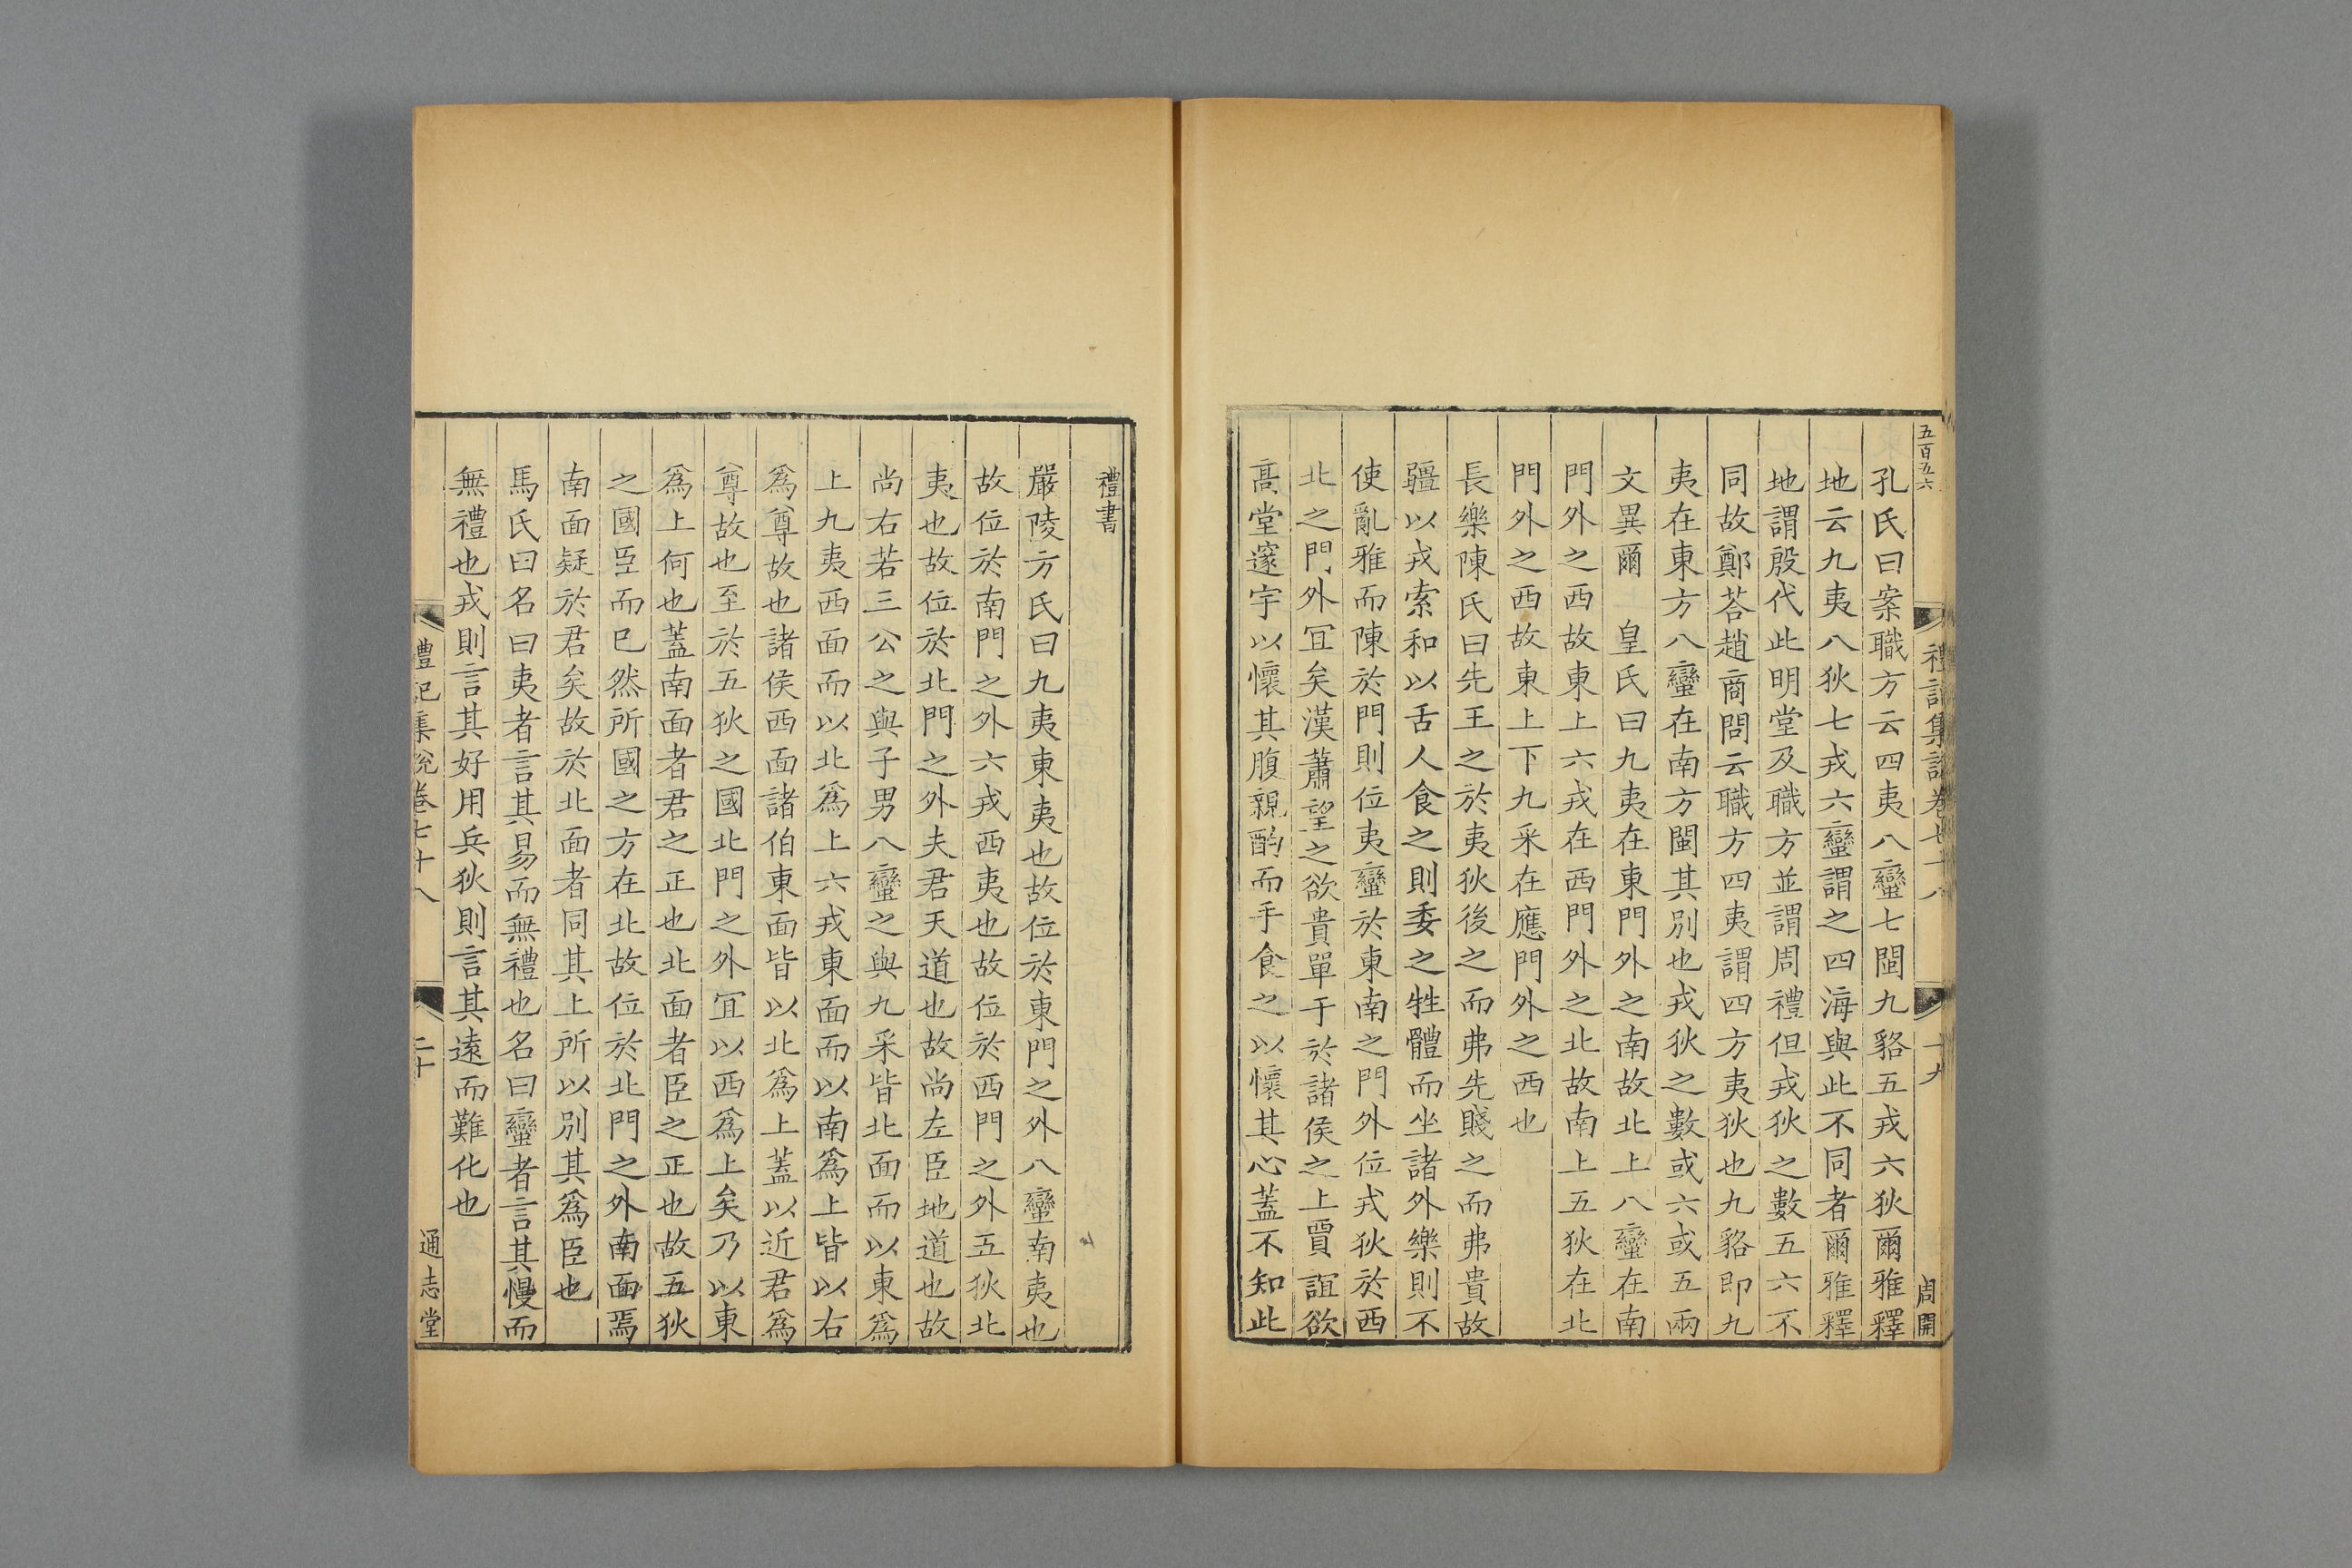 五百五六
禮記集說卷七十八
十九
周開
孔氏曰案職方云四夷八蠻七閩九貉五戎六狄爾雅釋
地云九夷八狄七戎六蠻謂之四海與此不同者爾雅釋
地謂殷代此明堂及職方並謂周禮但戎狄之數五六不
同故鄭荅趙商問云職方四夷謂四方夷狄也九貉即九
夷在東方八蠻在南方閩其別也戎狄之數或六或五兩
文異爾 皇氏曰九夷在東門外之南故北上八蠻在南
門外之西故東上六戎在西門外之北故南上五狄在北
門外之西故東上下九采在應門外之西也
長樂陳氏曰先王之於夷狄後之而弗先賤之而弗貴故
疆以戎索和以舌人食之則委之牲體而坐諸外樂則不
使亂雅而陳於門則位夷蠻於東南之門外位戎狄於西
北之門外冝矣漢蕭望之欲貴單于於諸侯之上賈誼欲
髙堂邃宇以懷其腹親酌而手食之以懷其心蓋不知此
禮書
嚴陵方氏曰九夷東夷也故位於東門之外八蠻南夷也
故位於南門之外六戎西夷也故位於西門之外五狄北
夷也故位於北門之外夫君天道也故尚左臣地道也故
尚右若三公之與子男八蠻之與九采皆北面而以東爲
上九夷西面而以北爲上六戎東面而以南爲上皆以右
爲尊故也諸侯西面諸伯東面皆以北爲上蓋以近君爲
尊故也至於五狄之國北門之外冝以西爲上矣乃以東
爲上何也蓋南面者君之正也北面者臣之正也故五狄
之國臣而已然所國之方在北故位於北門之外南面焉
南面疑於君矣故於北面者同其上所以別其爲臣也
馬氏曰名曰夷者言其易而無禮也名曰蠻者言其慢而
無禮也戎則言其好用兵狄則言其遠而難化也
禮記集說卷七十八
二十
通志堂